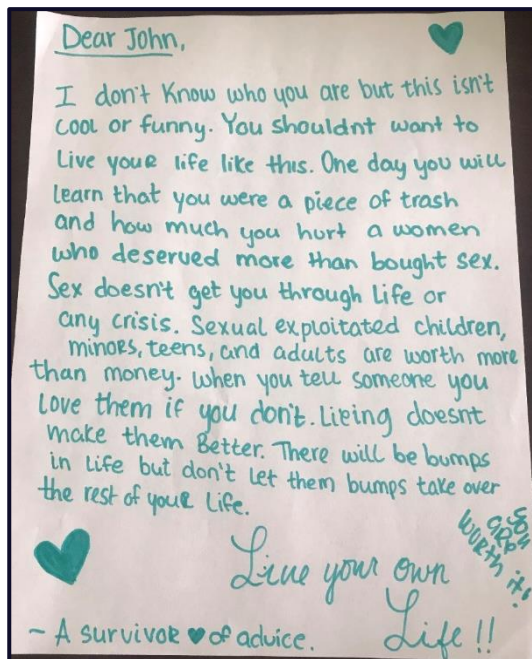 Dear John,
I don't know who you are but this isn't
cool or funny. You shouldnt want to
Live your life like this. One day you will
learn that you were a piece of trash
and how much you hurt a women
who deserved more than bought sex.
Sex doesn't get you through life or
any crisis. Sexual exploitated children,
minors, teens, and adults are worth more
than money. when you tell someone you
love them if you don't. Lieing doesnt
make them Better. There will be bumps
in life but don't let them bumps take over
the rest of your life.
you
are
worth it!
Live your own
Life!!
- A survivor ♥ of advice.